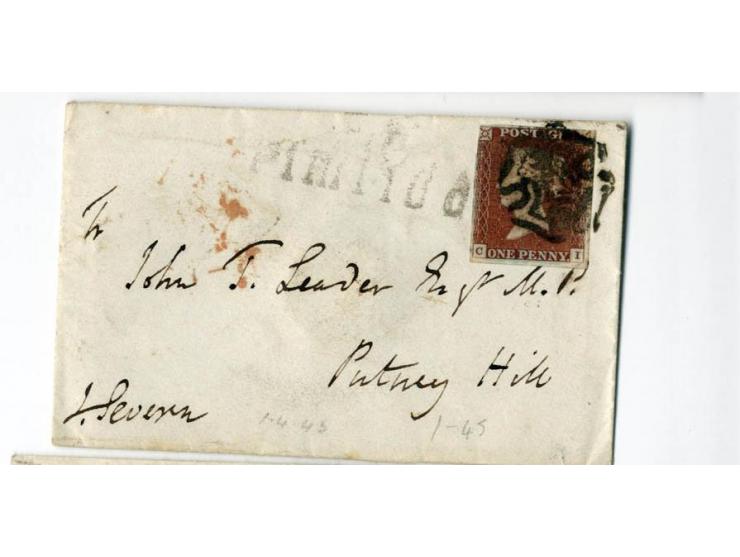 Pimlico
POSTAGE
C ONE PENNY I
To
John T. Leader Esqr M.P.
Putney Hill
J. Severn
1-4-45
1-45